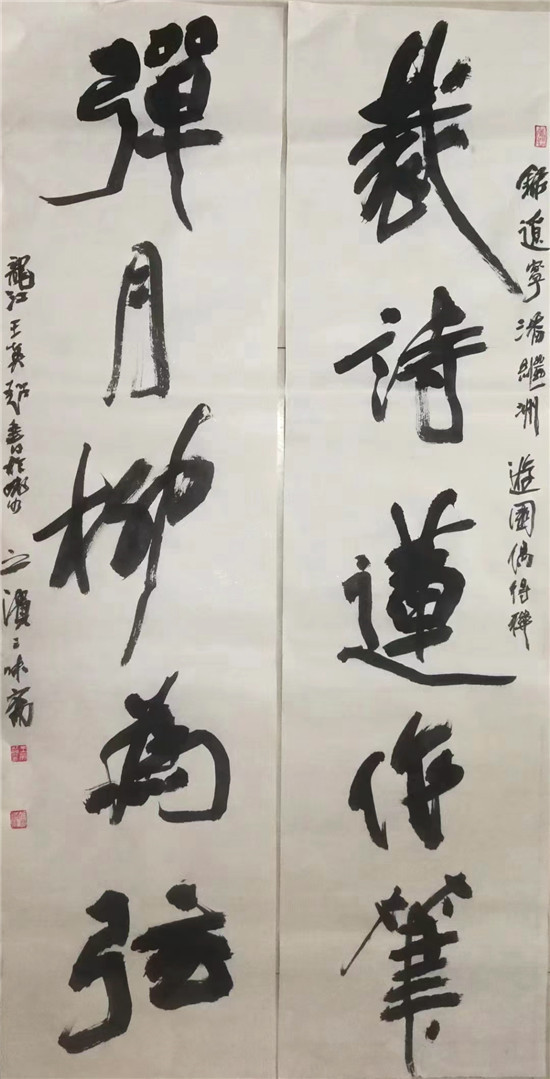 錄遼寧潘繼洲遊園偶得聯
裁詩蓮作筆
彈月柳為弦
龍江王英超書於
之濱三味齋